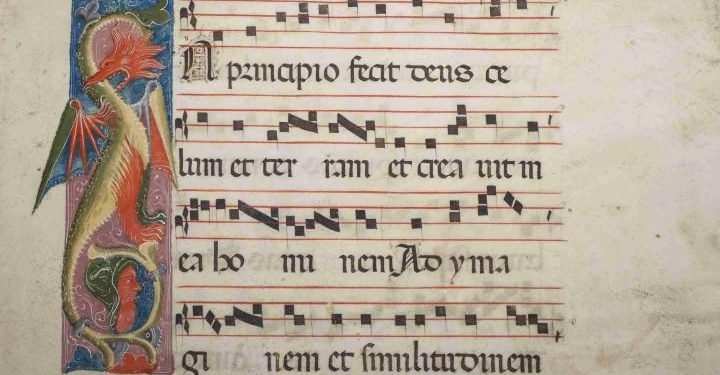 N principio fecit deus ce
lum et ter ram et crea uit in
ea ho mi nem Ad yma
gi nem et similitudinem